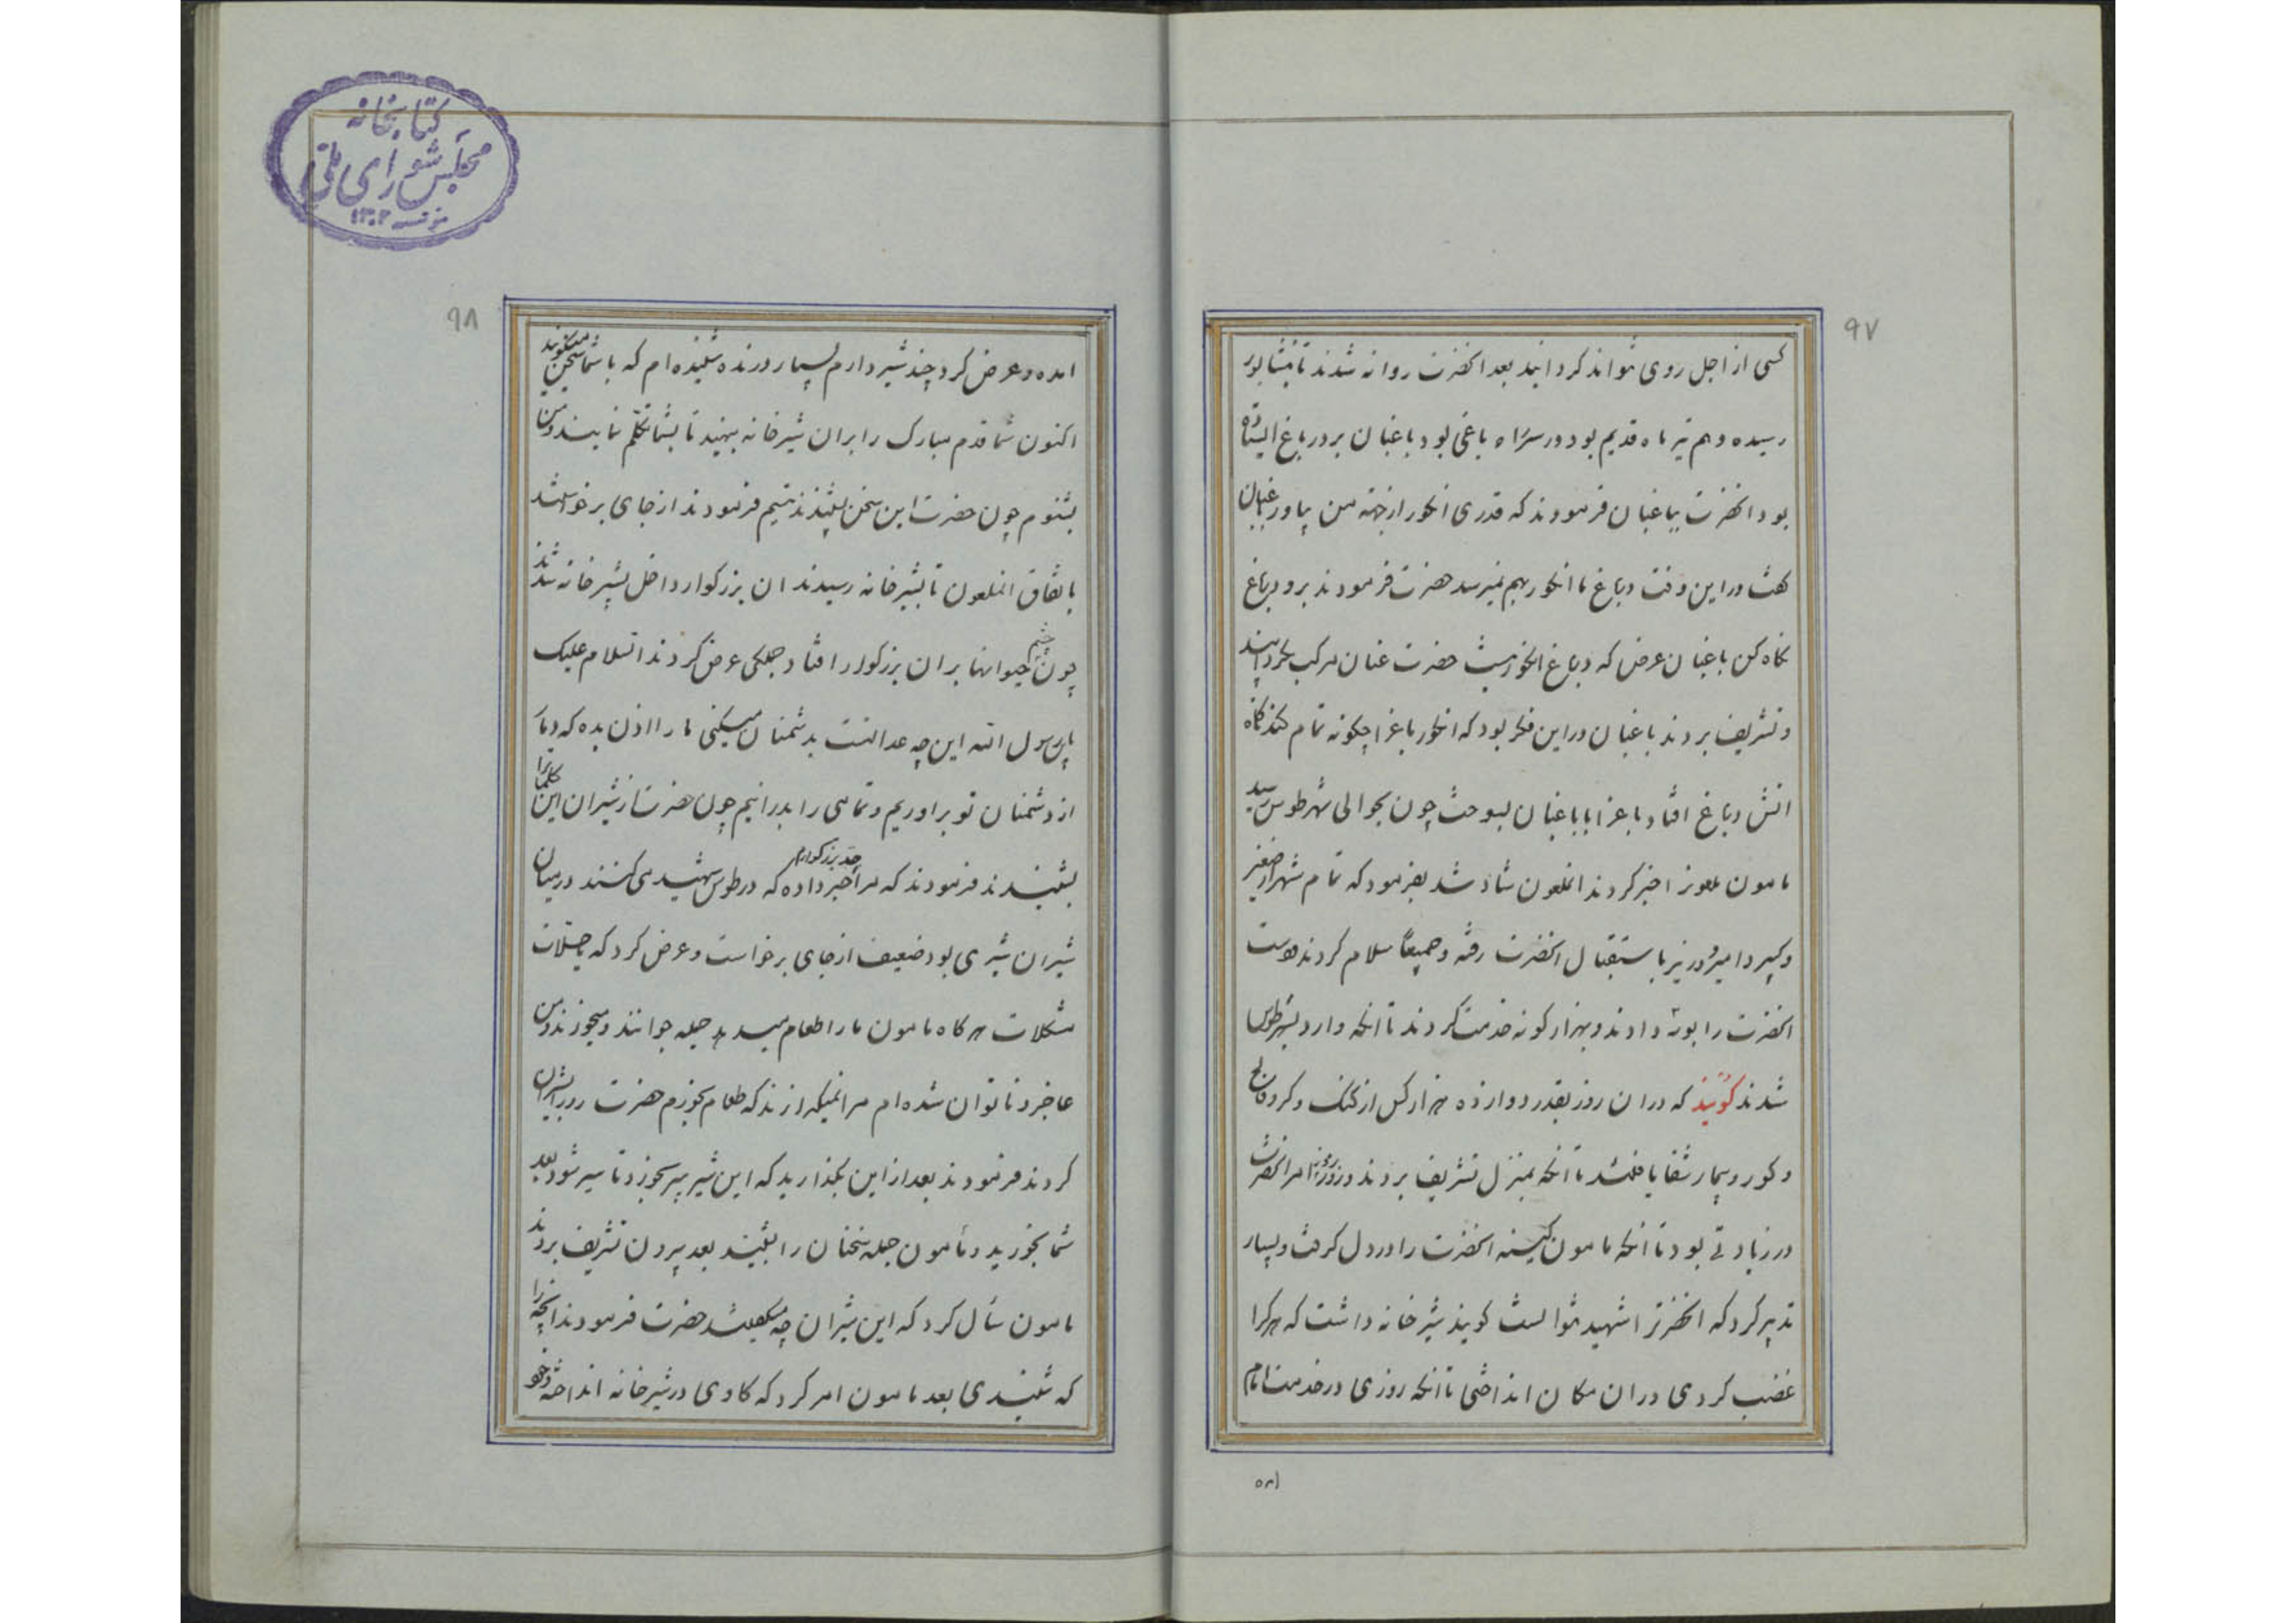 ۹۷
کسی از اجل روی نتواند کردانید بعد انحضرت روانه شدند تا نیشابور
رسیده دهم تیر ماه قدیم بود در سر راه باغی بود باغبان بر در باغ ایستاده
بود انحضرت بباغبان فرمودند که قدری انکور از جهته من بیاور باغبان
کفت در این وقت در باغ ما انکور بهم نمیرسد حضرت فرمودند برو در باغ
نکاه کن باغبان عرض که در باغ انکور نیست حضرت عنان مرکب بکردانیدند
و تشریف بردند باغبان در این فکر بود که انکور باغرا چکونه تمام کند ناکاه
اتش در باغ افتاد باغرا با باغبان بسوخت چون بحوالی شهر طوس رسید
مامون ملعونرا خبر کردند انملعون شاد شد بفرمود که تمام شهر از صغیر
و کبیر و امیر و وزیر باستقبال انحضرت رفته و جمیعاً سلام کردند و دست
انحضرت را بوسه دادند و بهزار کونه خدمت کردند تا انکه وارد بشهر طوس
شدند کویند که در ان روز بقدر دوازده هزار کس از کنک و کر و فالج
و کور و بیمار شفا یافتند تا انکه بمنزل تشریف بردند و روز بروز امر انحضرت
در زیادتی بود تا انکه مامون کینه انحضرت را در دل کرفت و بسیار
تدبیر کرد که انحضرترا شهید نتوانست کویند شیر خانه داشت که هر کرا
غضب کردی در ان مکان انداختی تا انکه روزی در خدمت امام
۹۸
امده و عرض کرد چند شیر دارم بسیار درنده شنیده ام که با شما سخن میکویند
اکنون شما قدم مبارک را بر ان شیرخانه بنهید تا بشما تکلم نمایند و من
بشنوم چون حضرت این سخن بشنیدند تبسم فرمودند از جای برخواستند
باتفاق انملعون تا بشیرخانه رسیدند ان بزرکوار داخل بشیر خانه شدند
چون چشم حیوانها بر ان بزرکوار افتاد جملکی عرض کردند السلام علیک
یابن رسول الله این چه عدالتست بدشمنان میکنی ما را اذن بده که دمار
از دشمنان تو بر اوریم و تمامی را بدرانیم چون حضرت از شیران این کلماترا
بشنیدند فرمودند که مرا جد بزرکوارم خبر داده که در طوس شهید می کنند در میان
شیران شیری بود ضعیف از جای برخواست و عرض کرد که یا حلال
مشکلات هر کاه مامون ما را طعام میدهد جمله جوانند و میخورند و من
عاجز و ناتوان شده ام مرا نمیکذارند که طعام بخورم حضرت رو بشیران
کردند فرمودند بعد از این بکذارید که این شیر پیر بخورد تا سیر شود بعد
شما بخورید و مامون جمله سخنان را بشنید بعد بیرون تشریف بردند
مامون سأل کرد که این شیران چه میکفتند حضرت فرمودند انچه را
که شنیدی بعد مامون امر کرد که کاوی در شیرخانه انداخته و خود
امده
کتابخانه
مجلس شورای ملی
مؤسسه ۱۳۰۲